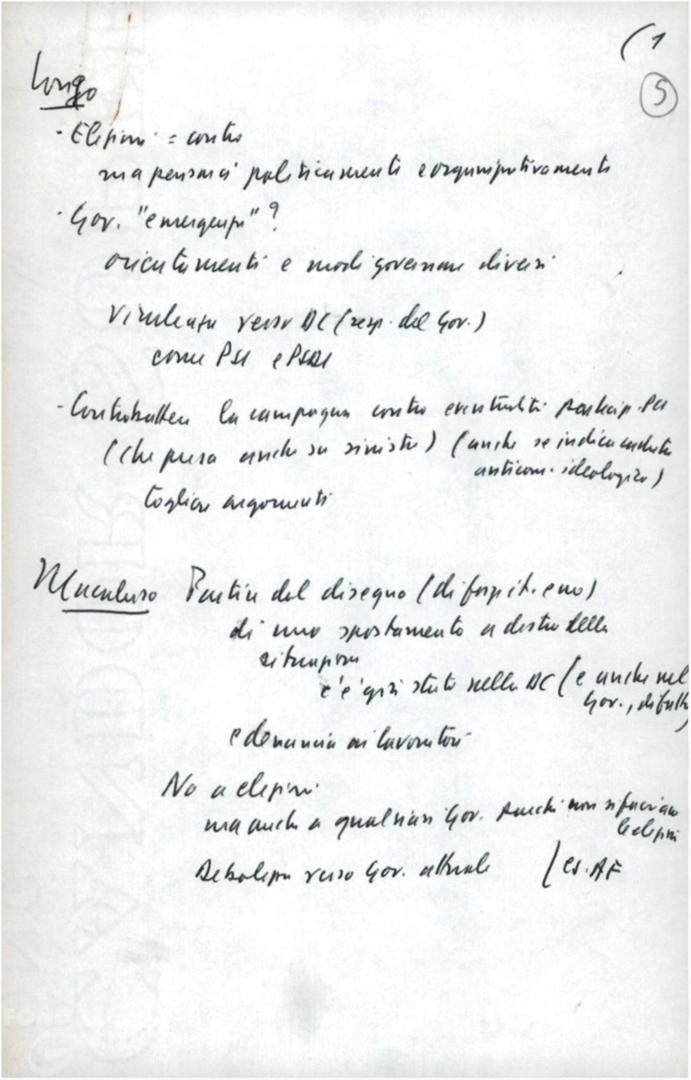 (1
5
Longo
- Elezioni = contro
ma pensarci politicamente e organizzativamente
- Gov. "emergenza"?
orientamenti e modi governare diversi
virulenza verso DC (resp. del Gov.)
come PSI e PSDI
- Controbattere la campagna contro eventualità partecip. PCI
(che pesa anche su sinistre) (anche se indica caduta
anticom. ideologico)
togliere argomenti
Macaluso Partire dal disegno (di forze it. e am.)
di uno spostamento a destra della
situazione
c'è già stato nella DC (e anche nel
Gov., di fatto)
e denuncia ai lavoratori
No a elezioni
ma anche a qualsiasi Gov. purché non si facciano
le elezioni
Debolezza verso Gov. attuale (es. AF